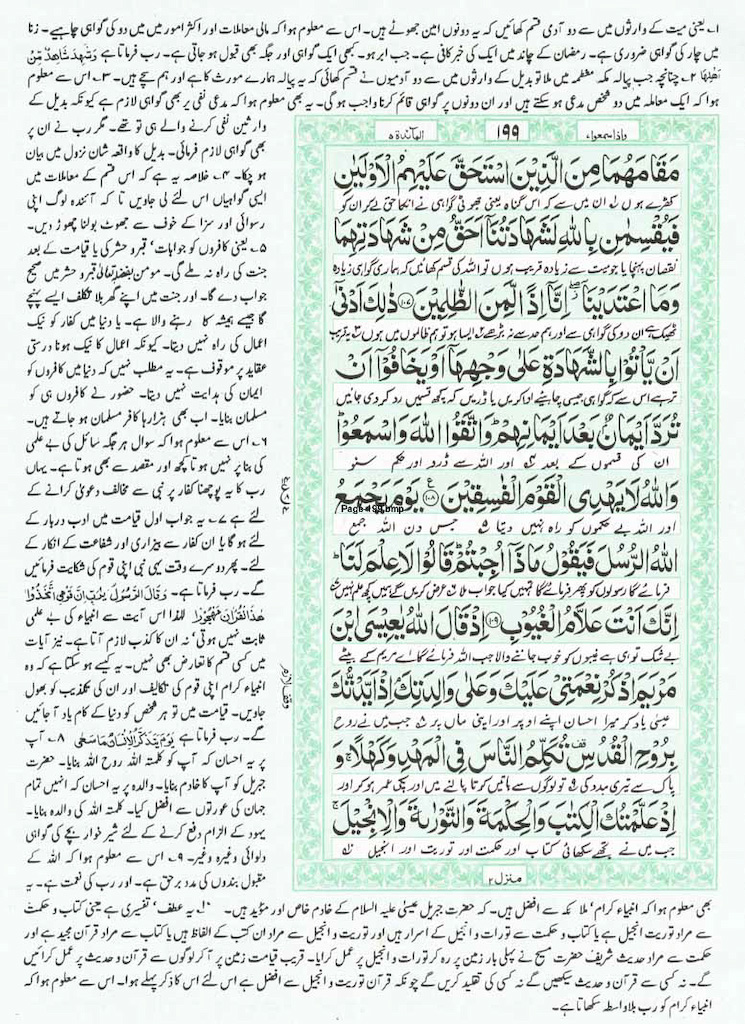 ۱۔ یعنی میت کے وارثوں میں سے دو آدمی قسم کھائیں کہ یہ دونوں امین جھوٹے ہیں۔ اس سے معلوم ہوا کہ مالی معاملات اور اکثر امور میں دو کی گواہی چاہیے۔ زنا
میں چار کی گواہی ضروری ہے۔ رمضان کے چاند میں ایک کی خبر کافی ہے۔ جب ابر ہو۔ کبھی ایک گواہی اور جگہ بھی قبول ہو جاتی ہے۔ رب فرماتا ہے وَشَهِدَ شَاهِدٌ مِّنْ
اَهْلِهَا ۲۔ چنانچہ جب پیالہ مکہ معظمہ میں ملا تو بدیل کے وارثوں میں سے دو آدمیوں نے قسم کھائی کہ یہ پیالہ ہمارے مورث کا ہے اور ہم سچے ہیں۔ ۳۔ اس سے معلوم
ہوا کہ ایک معاملہ میں دو شخص مدعی ہو سکتے ہیں اور ان دونوں پر گواہی قائم کرنا واجب ہو گی۔ یہ بھی معلوم ہوا کہ مدعی نفی پر بھی گواہی لازم ہے کیونکہ بدیل کے
وارثین نفی کرنے والے ہی تو تھے۔ مگر رب نے ان پر
بھی گواہی لازم فرمائی۔ بدیل کا واقعہ شان نزول میں بیان
ہو چکا۔ ۴۔ خلاصہ یہ ہے کہ اس قسم کے معاملات میں
ایسی گواہیاں اس لئے لی جاویں تا کہ آئندہ لوگ اپنی
رسوائی اور سزا کے خوف سے جھوٹ بولنا چھوڑ دیں۔
۵۔ یعنی کافروں کو جوابات، قبر و حشر کی یا قیامت کے بعد
جنت کی راہ نہ ملے گی۔ مومن بفضلہ تعالیٰ قبر و حشر میں صحیح
جواب دے گا۔ اور جنت میں اپنے گھر بلا تکلف ایسے پہنچے
گا جیسے ہمیشہ کا رہنے والا ہے۔ یا دنیا میں کفار کو نیک
اعمال کی راہ نہیں دیتا۔ کیونکہ اعمال کا نیک ہونا درستی
عقاید پر موقوف ہے۔ یہ مطلب نہیں کہ دنیا میں کافروں کو
ایمان کی ہدایت نہیں دیتا۔ حضور نے کافروں ہی کو
مسلمان بنایا۔ اب بھی ہزارہا کافر مسلمان ہو جاتے ہیں۔
۶۔ اس سے معلوم ہوا کہ سوال ہر جگہ سائل کی بے علمی
کی بنا پر نہیں ہوتا کچھ اور مقصد سے بھی ہوتا ہے۔ یہاں
رب کا یہ پوچھنا کفار پر نبی سے مخالف دعویٰ کرانے کے
لئے ہے ۷۔ یہ جواب اول قیامت میں ادب دربار کے
لئے ہو گا یا ان کفار سے بیزاری اور شفاعت کے انکار کے
لئے۔ پھر دوسرے وقت یہی نبی اپنی قوم کی شکایت فرمائیں
گے۔ رب فرماتا ہے۔ وَقَالَ الرَّسُوْلُ يٰرَبِّ اِنَّ قَوْمِى اتَّخَذُوْا
هٰذَا الْقُرْاٰنَ مَهْجُوْرًا لہٰذا اس آیت سے انبیاء کی بے علمی
ثابت نہیں ہوتی، نہ ان کا کذب لازم آتا ہے۔ نیز آیات
میں کسی قسم کا تعارض بھی نہیں۔ یہ کیسے ہو سکتا ہے کہ وہ
انبیاء کرام اپنی قوم کی تکالیف اور ان کی تکذیب کو بھول
جاویں۔ قیامت میں تو ہر شخص کو دنیا کے کام یاد آ جائیں
گے۔ رب فرماتا ہے يَوْمَ يَتَذَكَّرُ الْاِنْسَانُ مَا سَعٰى ۸۔ آپ
پر یہ احسان کہ آپ کو کلمتہ اللہ روح اللہ بنایا۔ حضرت
جبریل کو آپ کا خادم بنایا۔ والدہ پر یہ احسان کہ انہیں تمام
جہان کی عورتوں سے افضل کیا۔ کلمتہ اللہ کی والدہ بنایا۔
یہود کے الزام دفع کرنے کے لئے شیر خوار بچے کی گواہی
دلوائی وغیرہ وغیرہ۔ ۹۔ اس سے معلوم ہوا کہ اللہ کے
مقبول بندوں کی مدد برحق ہے۔ اور رب کی نعمت ہے۔ یہ
واذا سمعوا ۷
۱۹۹
المآئدة ۵
مَقَامَهُمَا مِنَ الَّذِيْنَ اسْتَحَقَّ عَلَيْهِمُ الْاَوْلَيٰنِ
کھڑے ہوں ان میں سے کہ اس گناہ یعنی جھوٹی گواہی نے انکا حق لے کر ان کو
فَيُقْسِمٰنِ بِاللّٰهِ لَشَهَادَتُنَاۤ اَحَقُّ مِنْ شَهَادَتِهِمَا
نقصان پہنچایا جو میت سے زیادہ قریب ہوں تو اللہ کی قسم کھائیں کہ ہماری گواہی زیادہ
وَمَا اعْتَدَيْنَاۤ ۖ اِنَّاۤ اِذًا لَّمِنَ الظّٰلِمِيْنَ ۱۰۷ ذٰلِكَ اَدْنٰۤى
ٹھیک ہے ان دو کی گواہی سے اور ہم حد سے نہ بڑھے ایسا ہو تو ہم ظالموں میں ہوں یہ قریب
اَنْ يَّاْتُوْا بِالشَّهَادَةِ عَلٰى وَجْهِهَاۤ اَوْ يَخَافُوْۤا اَنْ
تر ہے اس سے کہ گواہی جیسی چاہیئے ادا کریں یا ڈریں کہ کچھ قسمیں رد کر دی جائیں
تُرَدَّ اَيْمَانٌۢ بَعْدَ اَيْمَانِهِمْ ؕ وَاتَّقُوا اللّٰهَ وَاسْمَعُوْا ؕ
ان کی قسموں کے بعد اور اللہ سے ڈرو اور حکم سنو
وَاللّٰهُ لَا يَهْدِى الْقَوْمَ الْفٰسِقِيْنَ ۱۰۸ يَوْمَ يَجْمَعُ
Page-199.bmp
اور اللہ بے حکموں کو راہ نہیں دیتا جس دن اللہ جمع
اللّٰهُ الرُّسُلَ فَيَقُوْلُ مَاذَاۤ اُجِبْتُمْ ؕ قَالُوْا لَا عِلْمَ لَنَا ؕ
فرمائے گا رسولوں کو پھر فرمائے گا تمہیں کیا جواب ملا عرض کریں گے ہمیں کچھ علم نہیں
اِنَّكَ اَنْتَ عَلَّامُ الْغُيُوْبِ ۱۰۹ اِذْ قَالَ اللّٰهُ يٰعِيْسَى ابْنَ
بے شک تو ہی ہے غیبوں کو خوب جاننے والا جب اللہ فرمائے گا اے مریم کے بیٹے
مَرْيَمَ اذْكُرْ نِعْمَتِىْ عَلَيْكَ وَعَلٰى وَالِدَتِكَ ۘ اِذْ اَيَّدْتُّكَ
عیسیٰ یاد کر میرا احسان اپنے اوپر اور اپنی ماں پر جب میں نے روح
بِرُوْحِ الْقُدُسِ تُكَلِّمُ النَّاسَ فِى الْمَهْدِ وَكَهْلًا ۚ وَ
پاک سے تیری مدد کی تو لوگوں سے باتیں کرتا پالنے میں اور پکی عمر ہو کر اور
اِذْ عَلَّمْتُكَ الْكِتٰبَ وَالْحِكْمَةَ وَالتَّوْرٰىةَ وَالْاِنْجِيْلَ ۚ
جب میں نے تجھے سکھائی کتاب اور حکمت اور توریت اور انجیل
منزل ۲
بھی معلوم ہوا کہ انبیاء کرام، ملائکہ سے افضل ہیں۔ کہ حضرت جبریل عیسیٰ علیہ السلام کے خادم خاص اور مؤید ہیں۔ ۱۰۔ یہ عطف، تفسیری ہے یعنی کتاب و حکمت
سے مراد توریت انجیل ہے یا کتاب و حکمت سے تورات و انجیل کے اسرار ہیں اور توریت و انجیل سے مراد ان کتب کے الفاظ ہیں یا کتاب سے مراد قرآن مجید ہے اور
حکمت سے مراد حدیث شریف حضرت مسیح نے پہلی بار زمین پر رہ کر تورات و انجیل پر عمل کرایا۔ قریب قیامت زمین پر آ کر لوگوں سے قرآن و حدیث پر عمل کرائیں
گے۔ نہ کسی سے قرآن و حدیث سیکھیں گے نہ کسی کی تقلید کریں گے چونکہ قرآن توریت و انجیل سے افضل ہے اس لئے اس کا ذکر پہلے ہوا۔ اس سے معلوم ہوا کہ
انبیاء کرام کو رب بلاواسطہ سکھاتا ہے۔